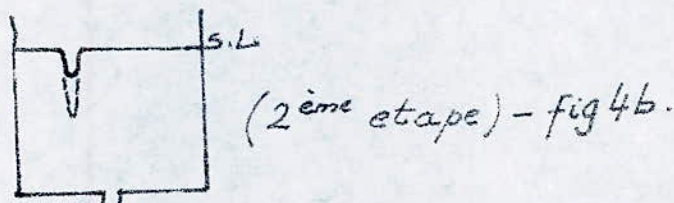 S.L
(2ème etape) - fig 4b.